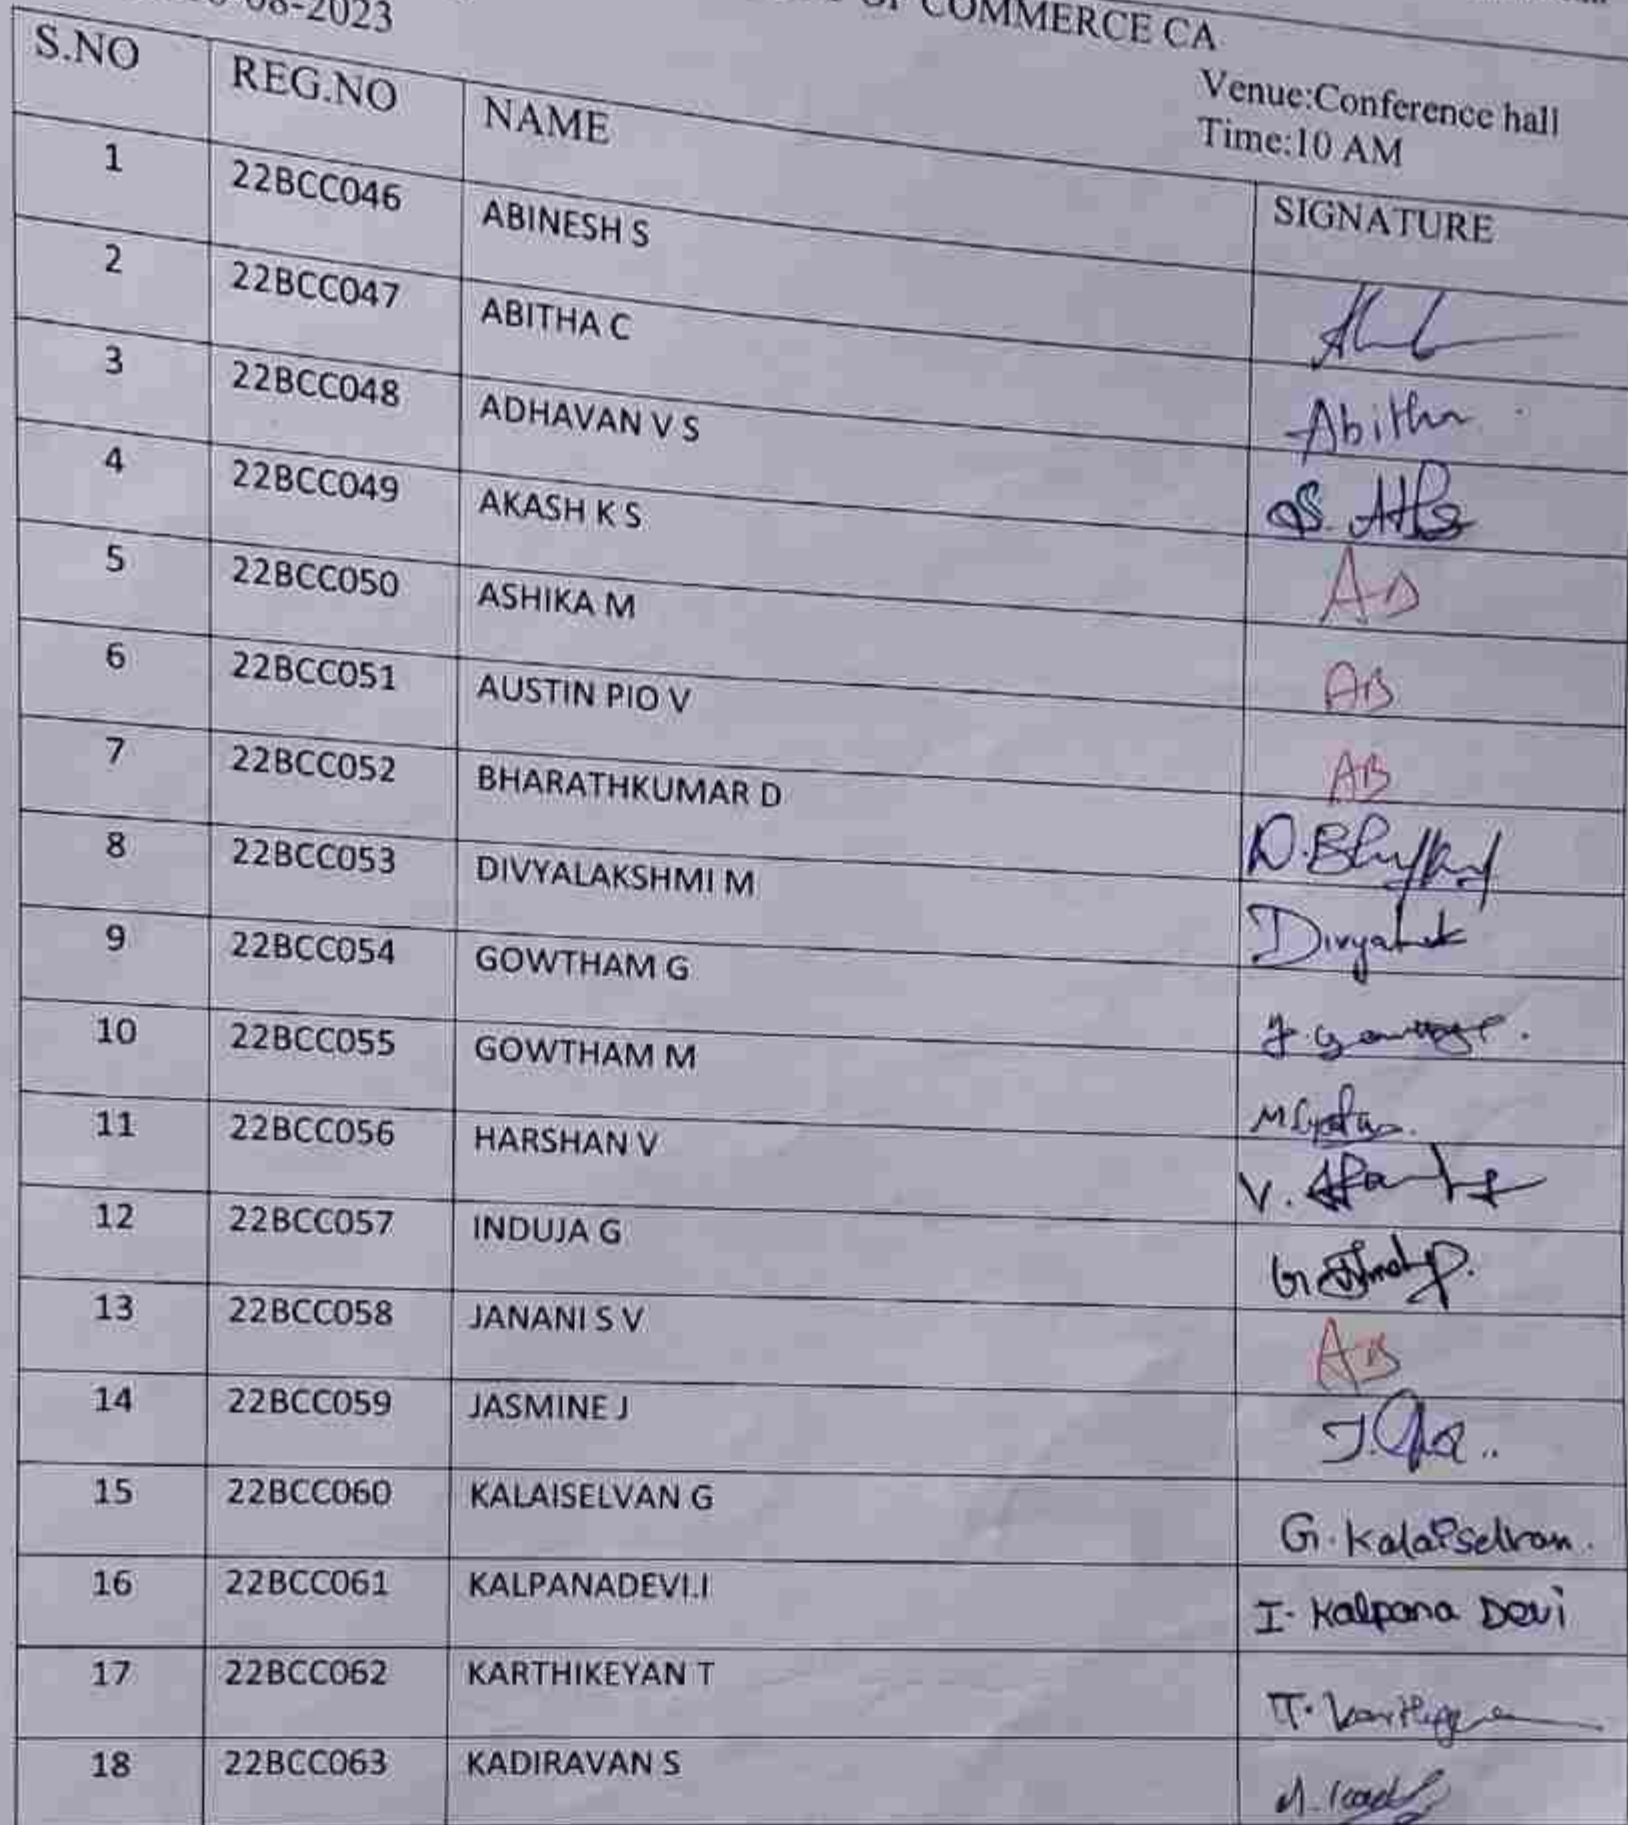 08-2023
OF COMMERCE CA
Venue:Conference hall
Time:10 AM
S.NO REG.NO NAME SIGNATURE
1 22BCC046 ABINESH S
2 22BCC047 ABITHA C Abitha
3 22BCC048 ADHAVAN V S
4 22BCC049 AKASH K S AB
5 22BCC050 ASHIKA M AB
6 22BCC051 AUSTIN PIO V AB
7 22BCC052 BHARATHKUMAR D
8 22BCC053 DIVYALAKSHMI M
9 22BCC054 GOWTHAM G
10 22BCC055 GOWTHAM M
11 22BCC056 HARSHAN V
12 22BCC057 INDUJA G
13 22BCC058 JANANI S V AB
14 22BCC059 JASMINE J
15 22BCC060 KALAISELVAN G G. Kalaiselvan.
16 22BCC061 KALPANADEVI.I I. Kalpana Devi
17 22BCC062 KARTHIKEYAN T
18 22BCC063 KADIRAVAN S